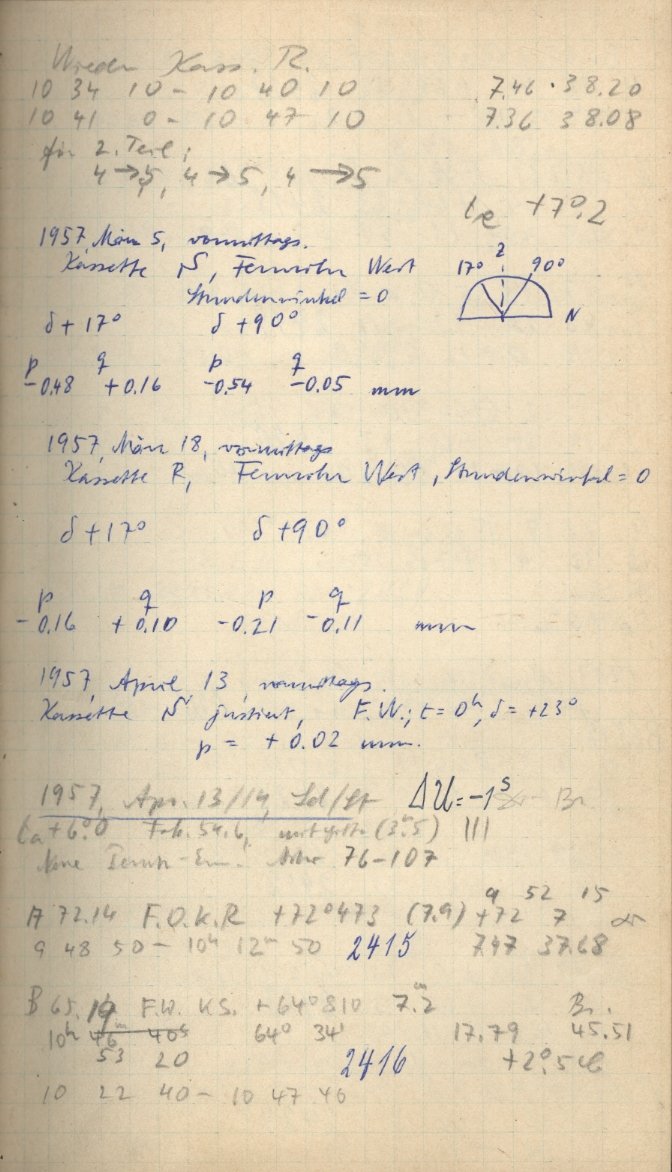 Wieder Kass. R.
10 34 10 – 10 40 10 7.46 · 38.20
10 41 0 – 10 47 10 7.36 38.08
für 2. Teil:
4 → 5, 4 → 5, 4 → 5
+7°.2
1957, März 5, vormittags.
Kassette S, Fernrohr West
Stundenwinkel = 0
17° Z 90°
N
δ + 17° δ + 90°
p q p q
-0.48 +0.16 -0.54 -0.05 mm
1957, März 18, vormittags
Kassette R, Fernrohr West, Stundenwinkel = 0
δ + 17° δ + 90°
p q p q
-0.16 +0.10 -0.21 -0.11 mm
1957, April 13, vormittags.
Kassette S justiert, F.W.; t = 0ʰ, δ = +23°
p = +0.02 mm.
1957, Apr. 13/14, ΔU = -1ˢ Br.
+6°.0 54.6, (3ᵐ.5) III
Neue 76–107
9 52 15
A 72.14 F.O. K.R +72°473 (7.9) +72 7
9 48 50 – 10ʰ 12ᵐ 50 2415 7.47 37.68
B 65.19 F.W. K.S. +64°810 7.2ᵐ Br.
10ʰ 46ᵐ 40ˢ 64° 34' 17.79 45.51
53 20 2416 +2°.5
10 22 40 – 10 47 46